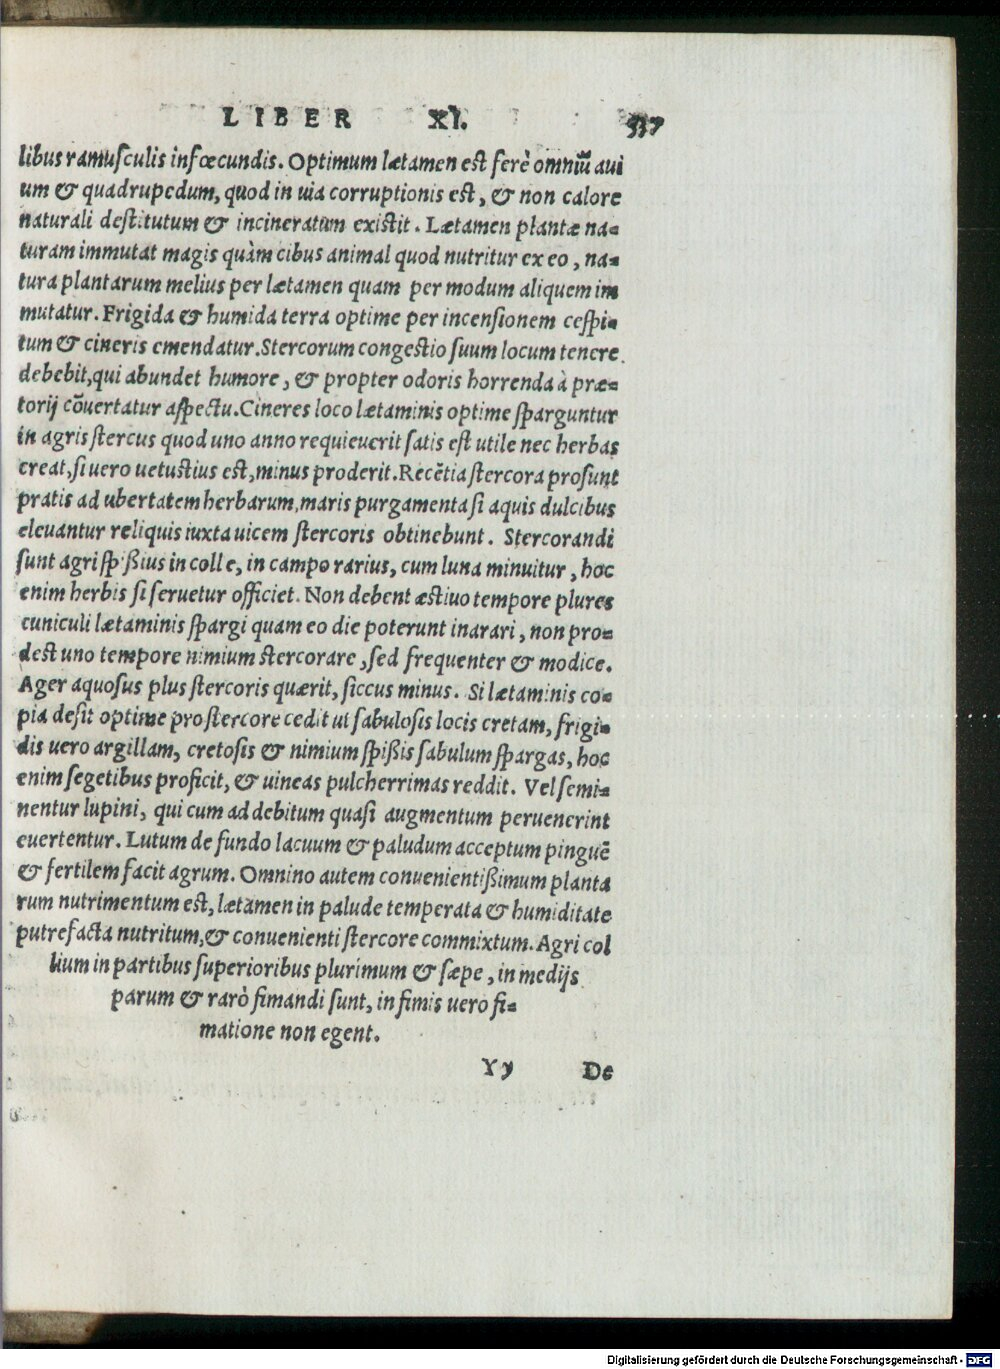 LIBER XI. 537
libus ramusculis infœcundis. Optimum lætamen est ferè omniū aui
um & quadrupedum, quod in uia corruptionis est, & non calore
naturali destitutum & incineratum existit. Lætamen plantæ na=
turam immutat magis quàm cibus animal quod nutritur ex eo, na=
tura plantarum melius per lætamen quam per modum aliquem im
mutatur. Frigida & humida terra optime per incensionem cespi=
tum & cineris emendatur. Stercorum congestio suum locum tenere
debebit, qui abundet humore, & propter odoris horrenda à præ=
torij cōuertatur aspectu. Cineres loco lætaminis optime sparguntur
in agris stercus quod uno anno requieuerit satis est utile nec herbas
creat, si uero uetustius est, minus proderit. Recētia stercora prosunt
pratis ad ubertatem herbarum, maris purgamenta si aquis dulcibus
eleuantur reliquis iuxta uicem stercoris obtinebunt. Stercorandi
sunt agri spißius in colle, in campo rarius, cum luna minuitur, hoc
enim herbis si seruetur officiet. Non debent æstiuo tempore plures
cuniculi lætaminis spargi quam eo die poterunt inarari, non pro=
dest uno tempore nimium stercorare, sed frequenter & modice.
Ager aquosus plus stercoris quærit, siccus minus. Si lætaminis co=
pia desit optime pro stercore cedit ut sabulosis locis cretam, frigi=
dis uero argillam, cretosis & nimium spißis sabulum spargas, hoc
enim segetibus proficit, & uineas pulcherrimas reddit. Vel semi=
nentur lupini, qui cum ad debitum quasi augmentum peruenerint
euertentur. Lutum de fundo lacuum & paludum acceptum pinguē
& fertilem facit agrum. Omnino autem conuenientißimum planta
rum nutrimentum est, lætamen in palude temperata & humiditate
putrefacta nutritum, & conuenienti stercore commixtum. Agri col
lium in partibus superioribus plurimum & sæpe, in medijs
parum & rarò fimandi sunt, in fimis uero fi=
matione non egent.
Yy De
Digitalisierung gefördert durch die Deutsche Forschungsgemeinschaft - DFG